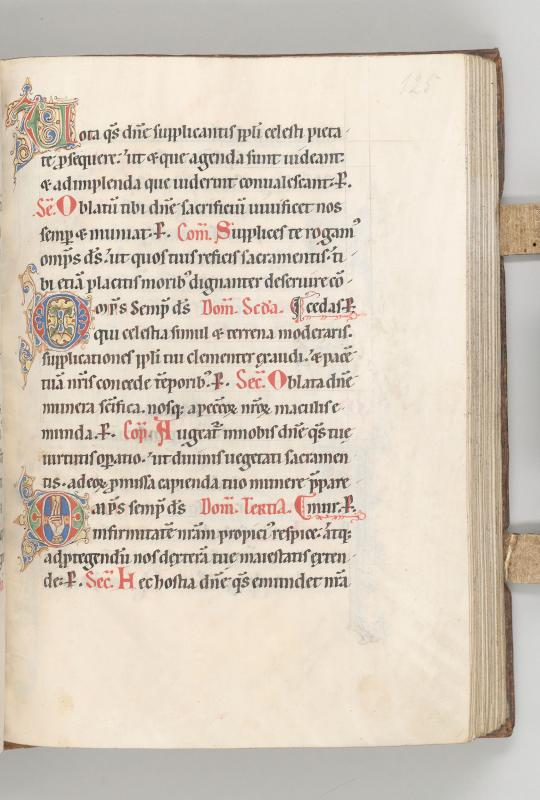 125
Vota qs dne supplicantis ppli celesti pieta
te psequere. ut & que agenda sunt uideant.
& adimplenda que uiderint conualescant. P.
Sec. Oblatū tibi dne sacrificiū uiuificet nos
semp & muniat. P. Com. Supplices te rogam'
omps ds. ut quos tuis reficis sacramentis. ti
bi etiā placitis morib; dignanter deseruire cō
Omps semp ds Dom. Scda. cedas. P.
qui celestia simul & terrena moderaris.
supplicationes ppli tui clementer exaudi. & pacē
tuā nris concede tēporib;. P. Sec. Oblata dne
munera scifica. nosq; a peccoꝝ nroꝝ maculis e
munda. P. Cop. Augeat in nobis dne qs tue
uirtutis opatio. ut diuinis uegetati sacramen
tis. ad eoꝝ pmissa capienda tuo munere ppare
Omps semp ds Dom. Tertia. mur. P.
infirmitatē nrām propici' respice. atq;
ad ptegendū nos dexterā tue maiestatis exten
de. P. Sec. Hec hostia dne qs emundet nrā